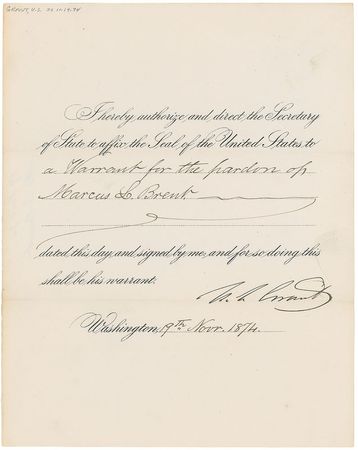 GRANT, U.S. DS 11-19-74
I hereby authorize and direct the Secretary
of State to affix the Seal of the United States to
a Warrant for the pardon of
Marcus L. Brent.
dated this day, and signed by me, and for so doing this
shall be his warrant.
U. S. Grant
Washington, 19th Nov. 1874.